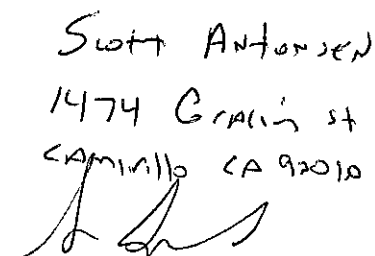 Scott Antonsen
1474 Gracin st
CAmirillo CA 93010